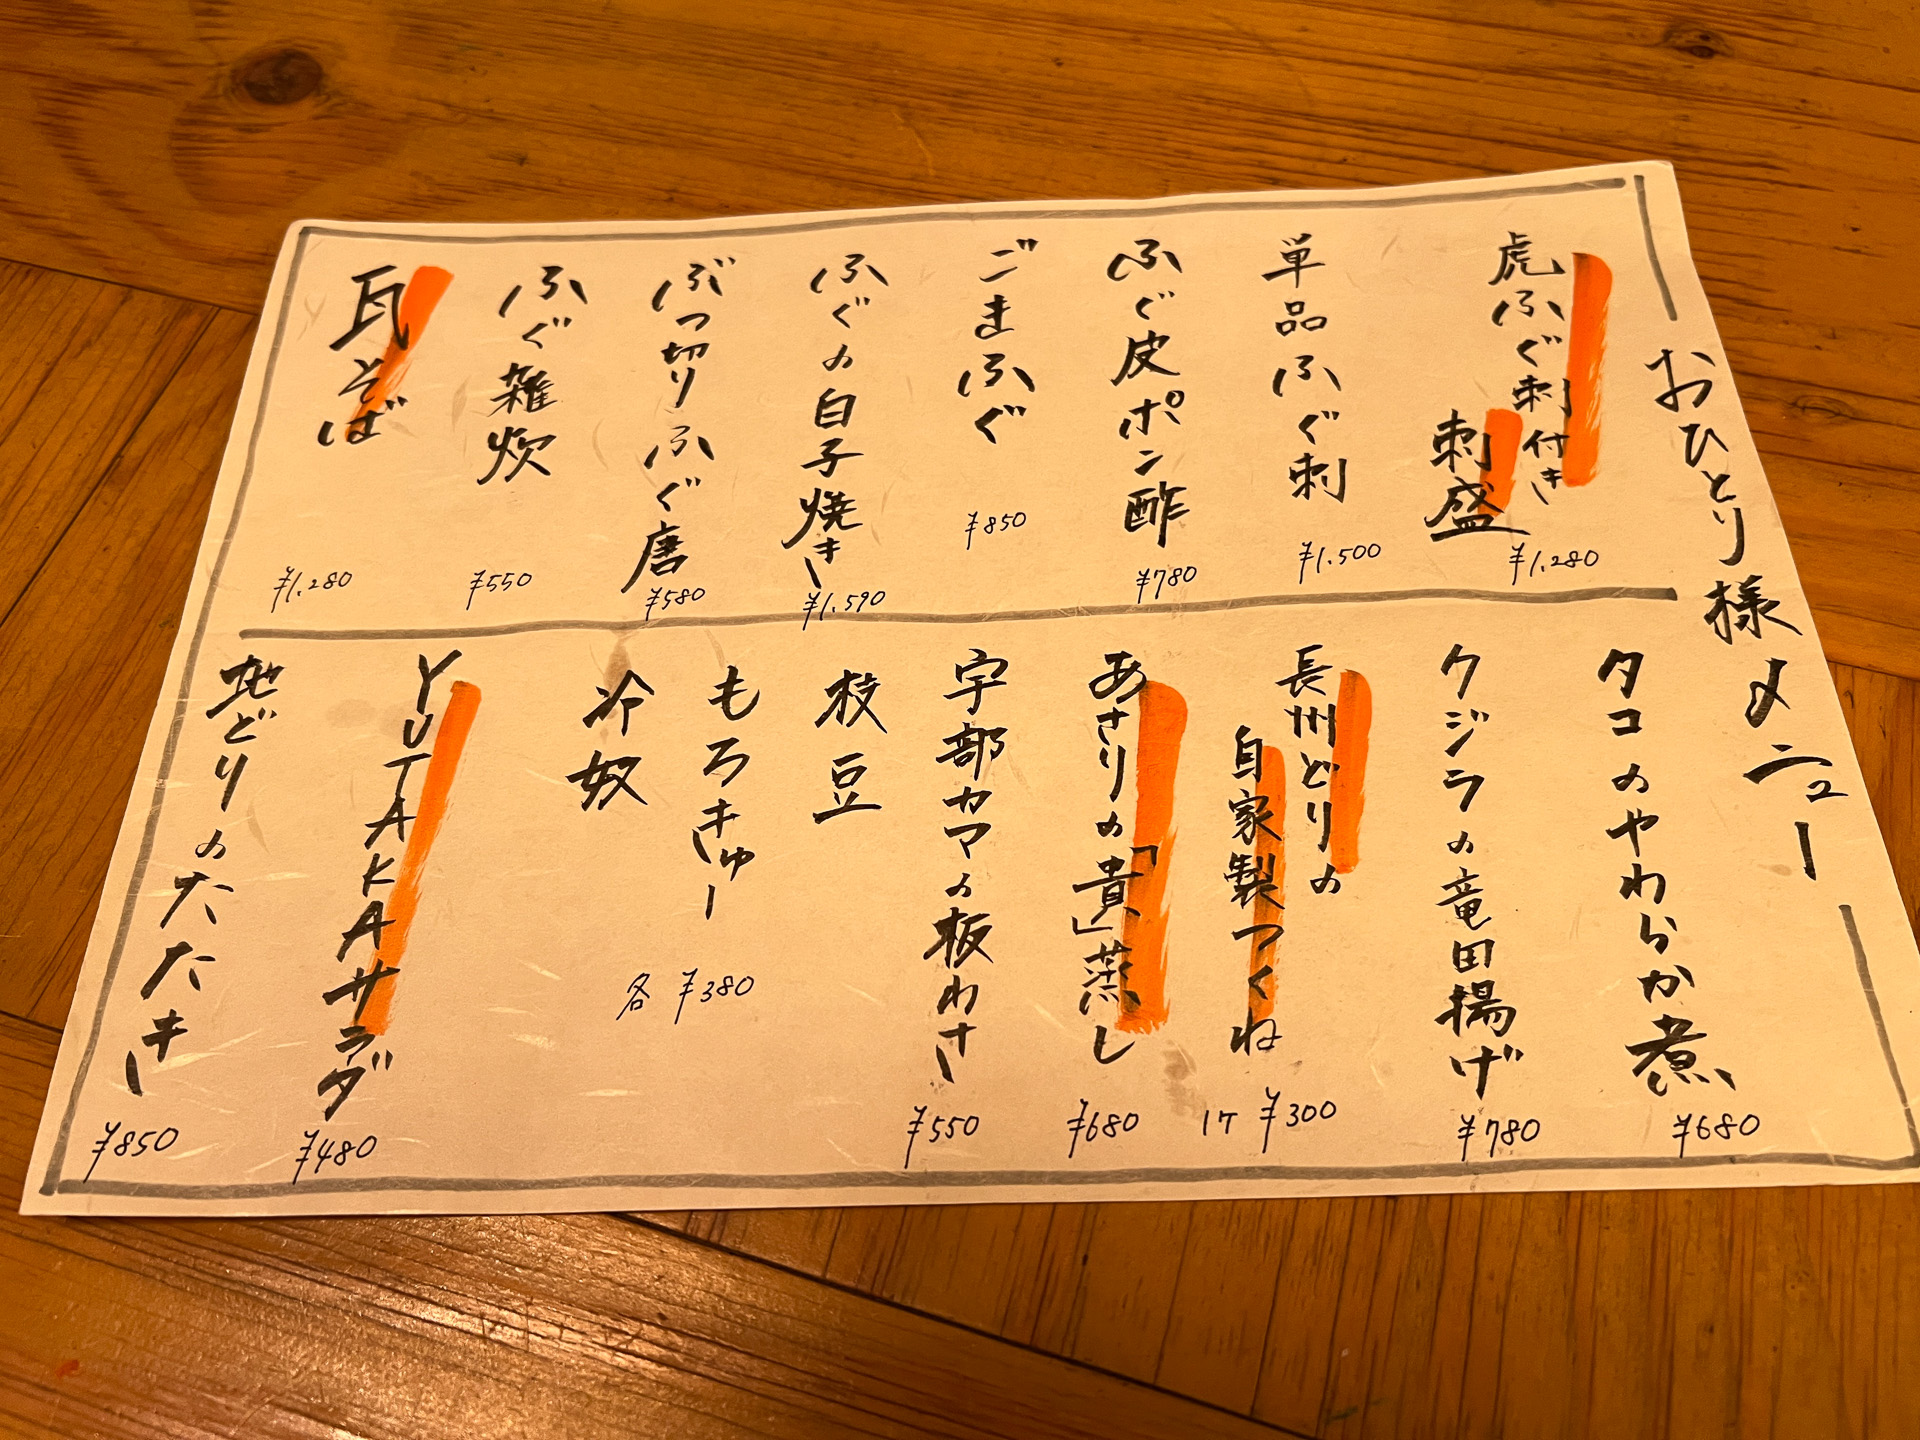 おひとり様メニュー
虎ふぐ刺付き
刺盛
¥1,280
単品ふぐ刺
¥1,500
ふぐ皮ポン酢
¥780
ごまふぐ
¥850
ふぐの白子焼き
¥1,590
ぶつ切りふぐ唐
¥580
ふぐ雑炊
¥550
瓦そば
¥1,280
タコのやわらか煮
¥680
クジラの竜田揚げ
¥780
長州どりの
自家製つくね
1ケ ¥300
あさりの「貴」蒸し
¥680
宇部カマの板わさ
¥550
枝豆
もろきゅー
冷奴
各 ¥380
YUTAKAサラダ
¥480
地どりのたたき
¥850